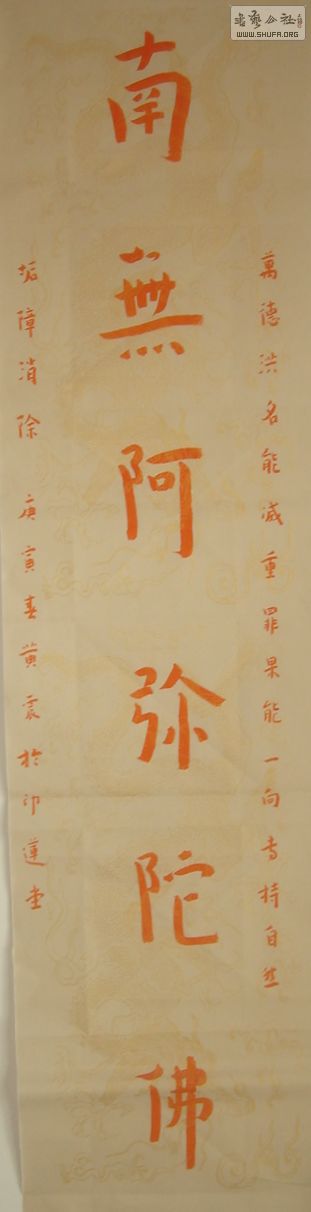 萬德洪名能滅重罪果能一向专持自然
南無阿弥陀佛
垢障消除 庚寅春黄震於印蓮堂
書藝公社
WWW.SHUFA.ORG